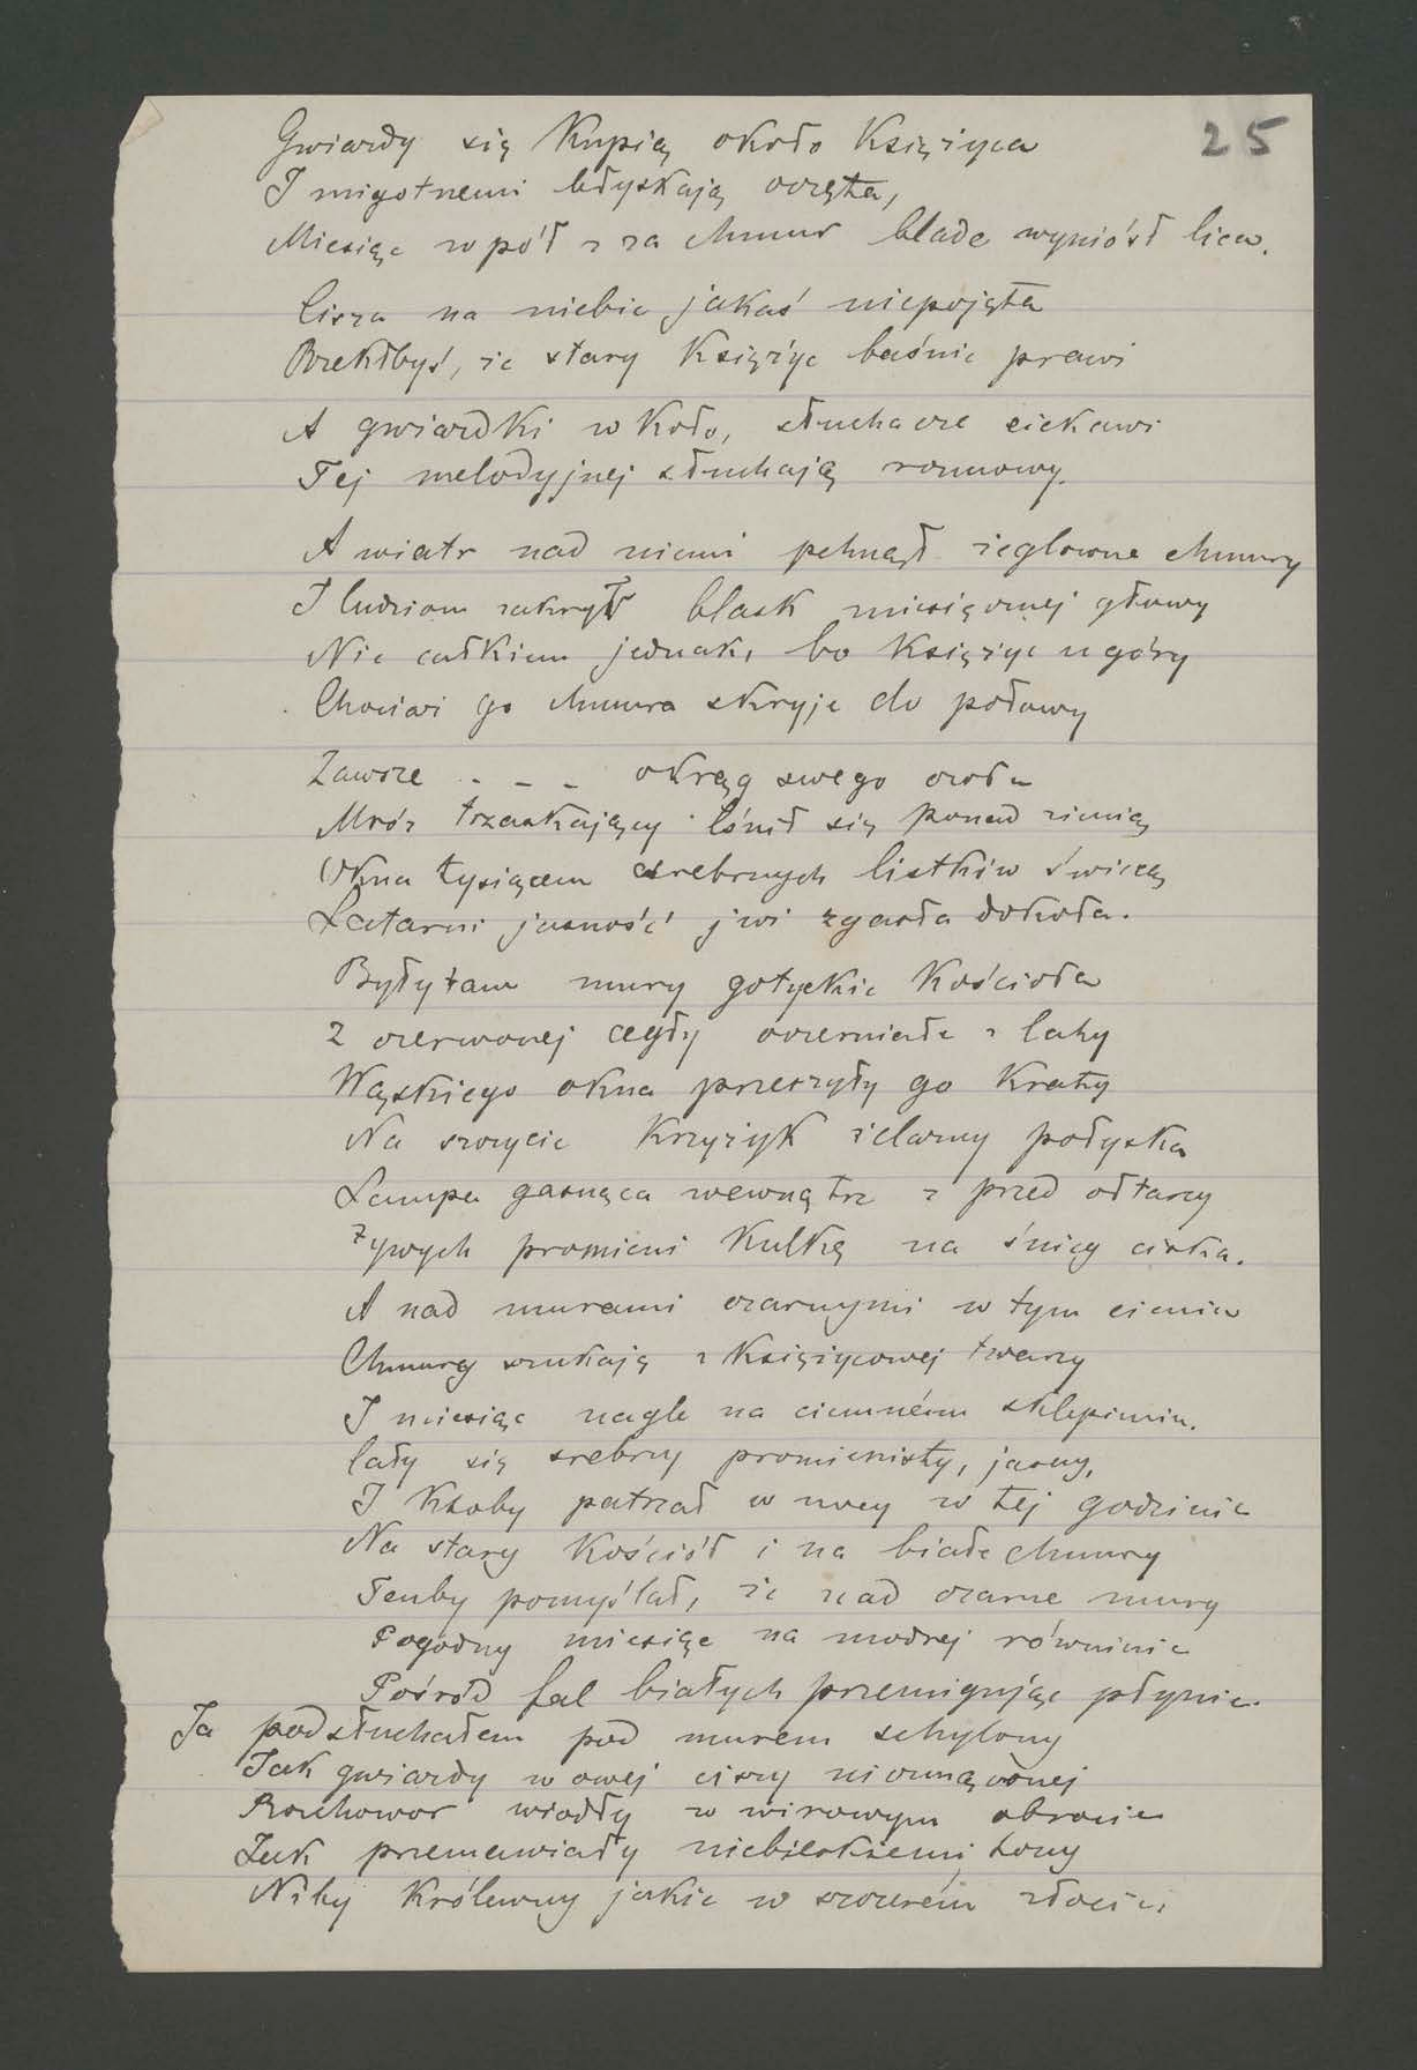 25
Gwiazdy się kupią około księżyca
I migotnemi błyskają oczęta,
Miesiąc wpół z za chmur blade wyniósł lica.
Cisza na niebie jakaś niepojęta
Rzekłbyś, że stary księżyc baśnie prawi
A gwiazdki w koło, słuchacze ciekawi
Tej melodyjnej słuchają rozmowy.
A wiatr nad niemi pchnął żeglowne chmury
I ludziom zakrył blask miesięcznej głowy
Nie całkiem jednak, bo księżyc u góry
Chociaż go chmura skryje do połowy
Zawsze - - - okrąg swego czoła
Mróz trzaskający lśnił się ponad ziemią
Okna tysiącem srebrnych listków świecą
Latarni jasność już zgasła dokoła.
Były tam mury gotyckie kościoła
Z czerwonej cegły oczerniałe z laty
Wąskiego okna przeszyły go kraty
Na szczycie krzyżyk żelazny połyska
Lampa gasnąca wewnątrz z przed ołtarzy
Żywych promieni kulkę na śnieg ciska.
A nad murami czarnymi w tym cieniu
Chmury szukają z księżycowej twarzy
I miesiąc nagle na ciemném sklepieniu.
Cały się srebrzy promienisty, jasny,
I ktoby patrzał w nocy w tej godzinie
Na stary kościół i na białe chmury
Tenby pomyślał, że nad czarne mury
Pogodny miesiąc na modrej równinie
Pośród fal białych przemigując płynie.
Ja podsłuchałem pod murem schylony
Jak gwiazdy w owej ciszy niezmąconej
Rozhowor wiodły w wirowym obrocie
Jak przemawiały niebieskiemi tony
Niby królewny jakie w szczerém złocie,